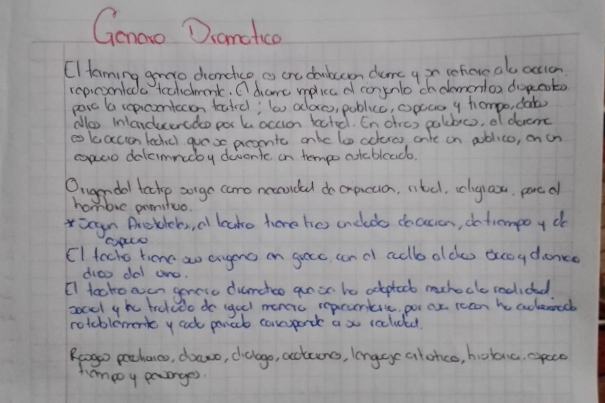 Genero Dramatico
El terming genero dramatico, es una deribacion drama y se refiere a la accion
representada teatralmente. El drama implica el conjunto de elementos dispuestos
para la representacion teatral; los actores, publico, espacio y tiempo, todos
ellos por la accion teatral. En otras palabras, el drama
es la accion teatral que se presenta ante los actores ante un publico, en un
espacio determinado y durante un tiempo establecido.
Origen del teatro surge como necesidad de expresion, ritual, religiosa, para el
hombre primitivo.
* Segun Aristoteles, el teatro tiene tres unidades de accion, de tiempo y de
espacio
El teatro tiene sus origenes en grecia, con el culto al dios baco y dionisio
dios del vino.
El teatro es un genero dramatico que se ha adaptado mucho a la realidad
social y ha tratado de igual manera representarla, por esa razon ha evolucionado
notablemente y cada periodo corresponde a su realidad.
Rasgos , drama, dialogo, acotaciones, lenguaje , historia, espacio
tiempo y personajes.